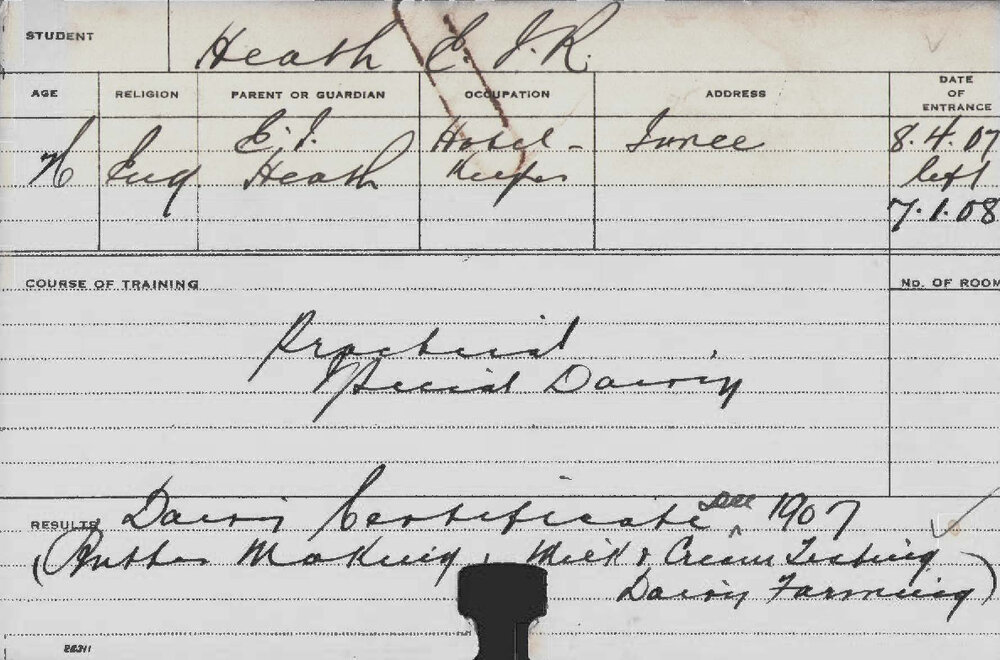 STUDENT Heath E. J. R.
AGE RELIGION PARENT OR GUARDIAN OCCUPATION ADDRESS DATE OF ENTRANCE
E. J. Hotel- Junee 8.4.07
Eng. Heath Keeper left
7.1.08
COURSE OF TRAINING No. OF ROOM
Practical
Special Dairy
RESULTS Dairy Certificate Dec 1907
(Butter Making, Milk & Cream Testing
Dairy Farming)
26311